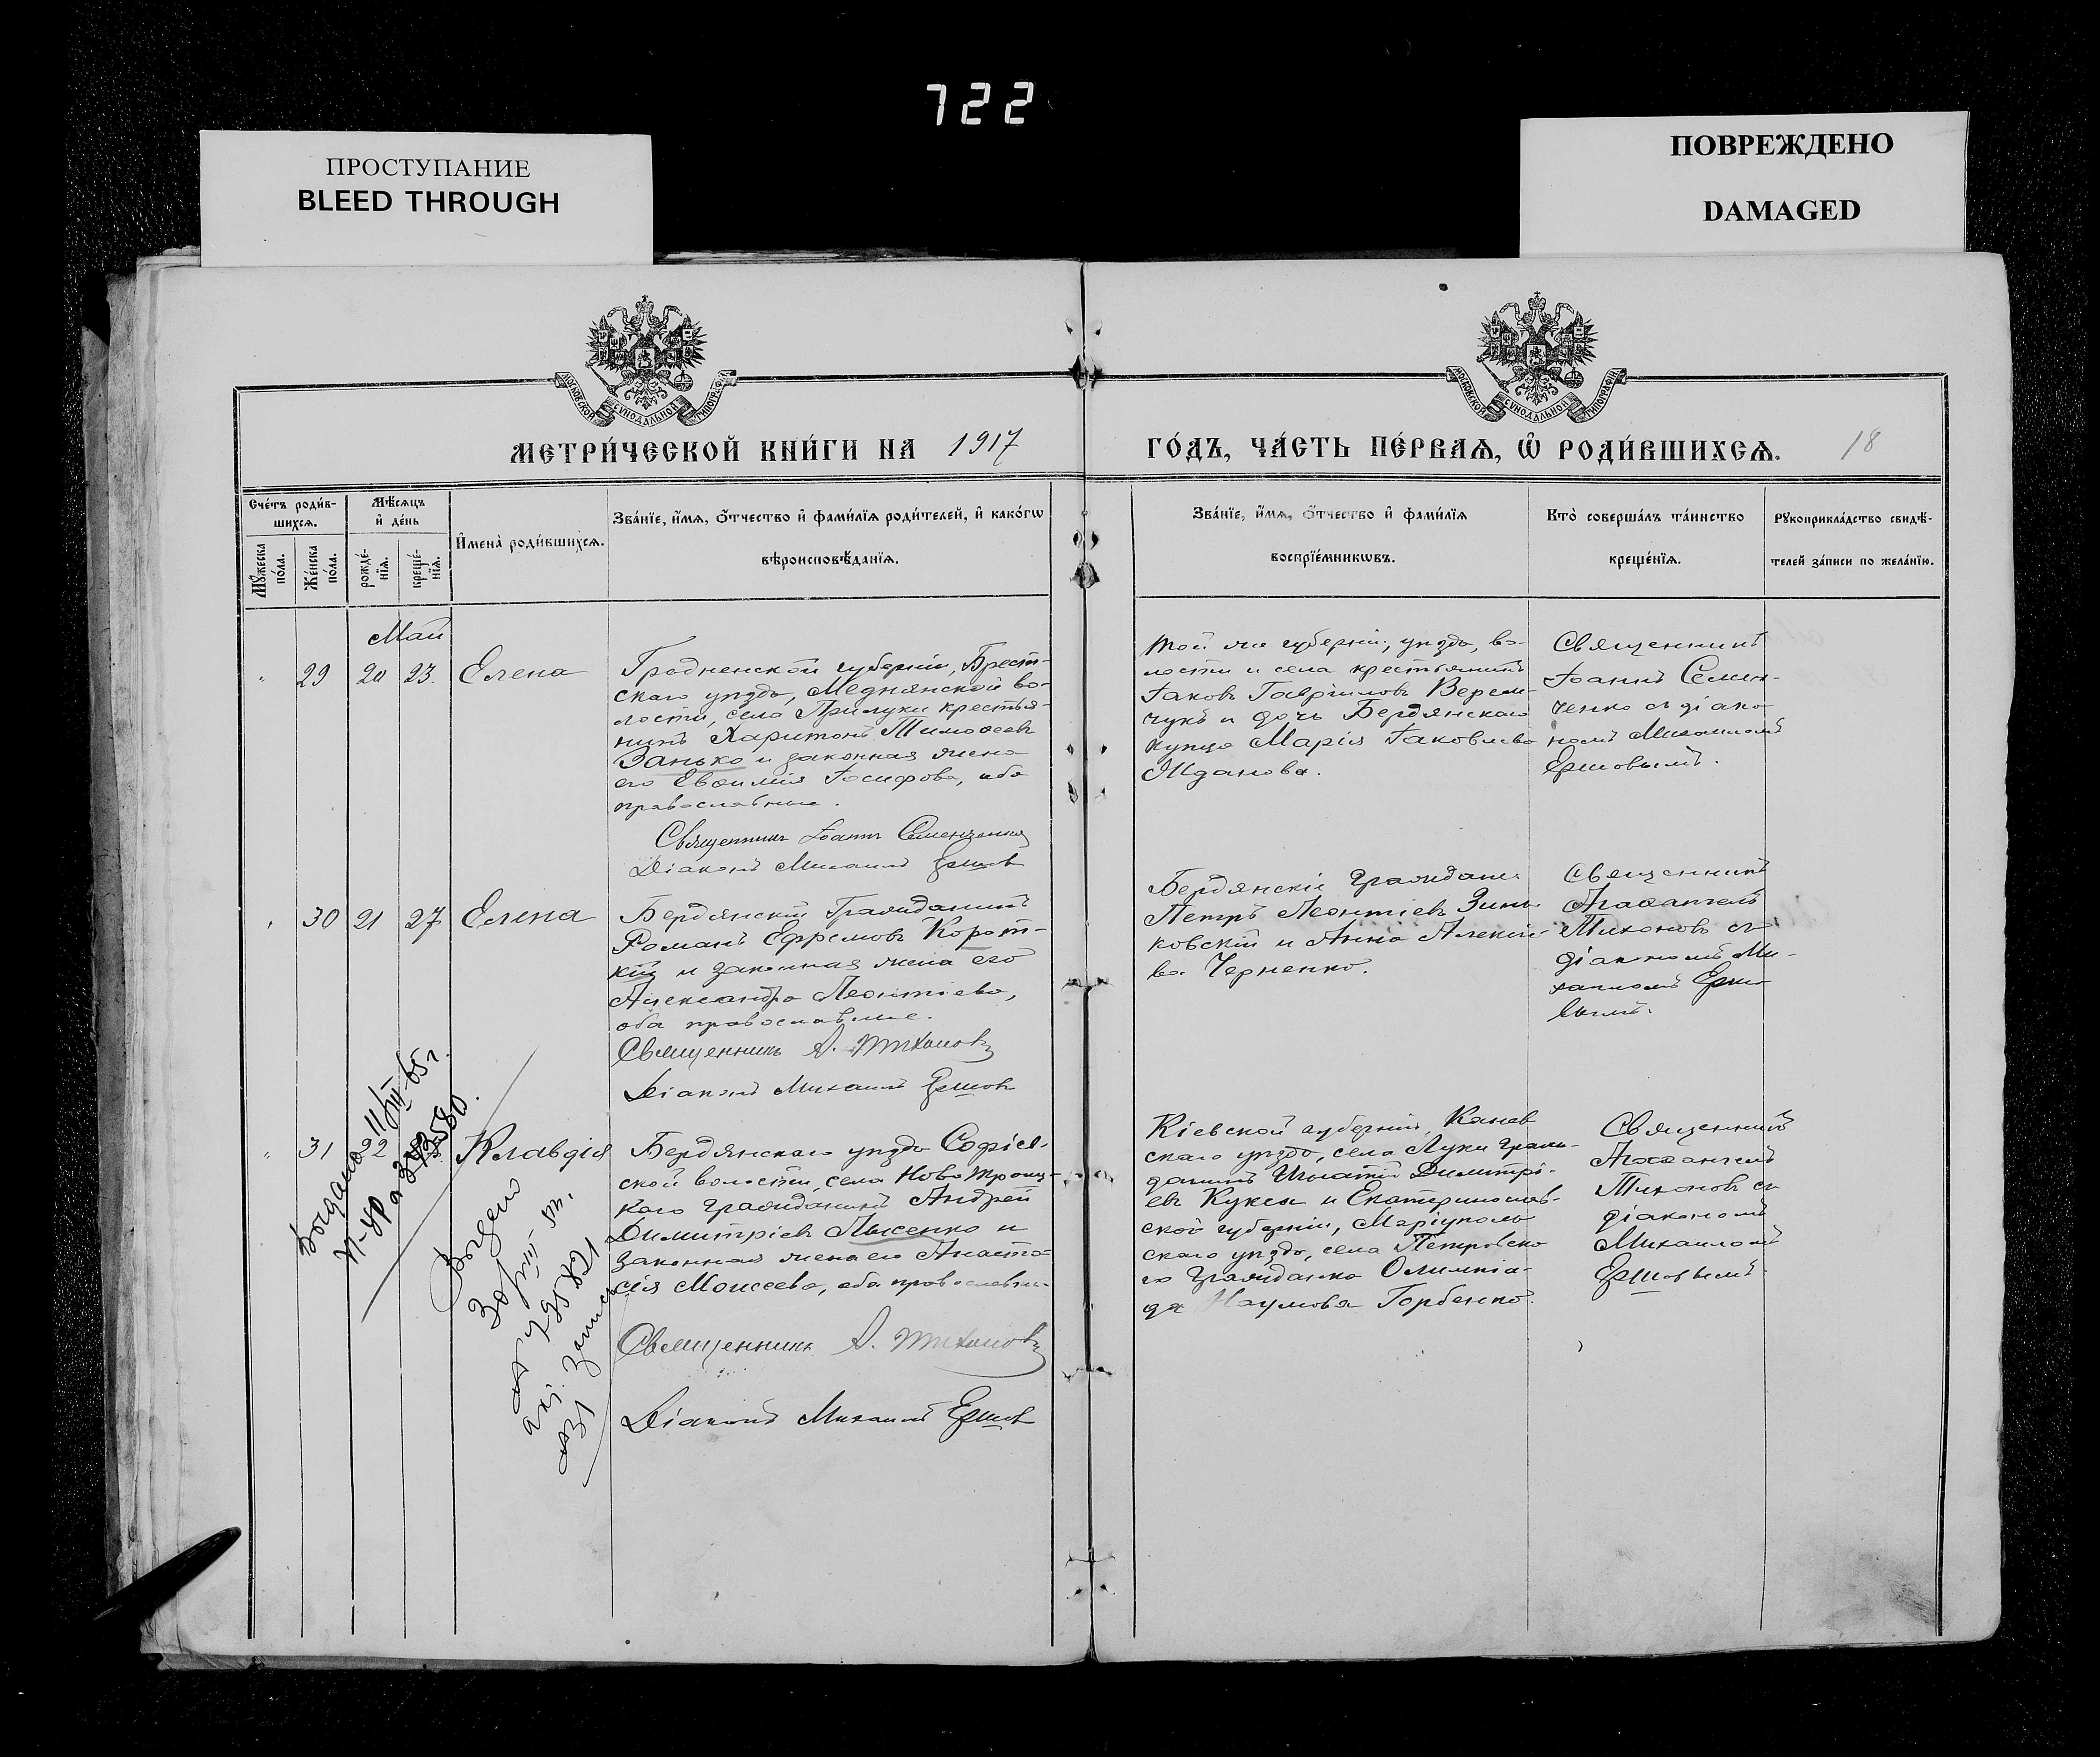 722
ПРОСТУПАНИЕ
BLEED THROUGH
ПОВРЕЖДЕНО
DAMAGED
МОСКОВСКОЙ СѴНОДАЛЬНОЙ ТИПОГРАФІИ
МОСКОВСКОЙ СѴНОДАЛЬНОЙ ТИПОГРАФІИ
МЕТРИ́ЧЕСКОЙ КНИ́ГИ НА 1917
ГО́ДЪ, ЧА́СТЬ ПЕ́РВАѦ, Ѡ҆ РОДИ́ВШИХСѦ. 18
Сче́тъ роди́в-
шихсѧ.
Мꙋ́жеска по́ла.
Же́нска по́ла.
Мѣ́сѧцъ
и҆ де́нь
рожде́-
нїѧ.
креще́-
нїѧ.
И҆мена̀ роди́вшихсѧ.
Зва́нїе, и҆́мѧ, ѻ҆́тчество и҆ фами́лїѧ роди́телей, и҆ како́гѡ
вѣроисповѣ́данїѧ.
Зва́нїе, и҆́мѧ, ѻ҆́тчество и҆ фами́лїѧ
воспрїе́мникѡвъ.
Кто̀ соверша́лъ та́инство
креще́нїѧ.
Рꙋкоприкла́дство свидѣ́-
телей за́писи по жела́нїю.
Май
" 29 20 23. Елена
Гродненской губерніи, Брест-
скаго уѣзда, Меднянской во-
лости, села Прилуки крестья-
нинъ Харитонъ Тимоѳеевъ
Занько и законная жена
его Евѳимія Іосифова, оба
православные.
Священникъ Іоаннъ Семенченко
Діаконъ Михаилъ Ершов
Той же губерніи, уѣзда, во-
лости и села крестьянинъ
Іаковъ Гавріиловъ Верем-
чукъ и дочь Бердянскаго
купца Марія Іаковлева
Жданова.
Священникъ
Іоаннъ Семен-
ченко съ діако-
номъ Михаиломъ
Ершовымъ.
" 30 21 27 Елена
Бердянскій Гражданинъ
Романъ Ефремовъ Корот-
кій и законная жена его
Александра Леонтіева,
оба православные.
Священникъ А. Тихоновъ
Діаконъ Михаилъ Ершовъ
Бердянскіе граждане
Петръ Леонтіевъ Зинь-
ковскій и Анна Алексіе-
ва Черненко.
Священникъ
Агаѳангелъ
Тихоновъ съ
діакономъ Ми-
хаиломъ Ершо-
вымъ.
" 31 22 Клавдія
Бердянскаго уѣзда Софіев-
ской волости, села Ново Троиц-
каго гражданинъ Андрей
Димитріевъ Лысенко и
законная жена его Анаста-
сія Моисеева, оба православн.
Священникъ А. Тихоновъ
Діаконъ Михаилъ Ершов
Кіевской губерніи, Канев-
скаго уѣзда, села Луки граж-
данинъ Игнатій Димитрі-
евъ Кукса и Екатеринослав-
ской губерніи, Маріуполь-
скаго уѣзда, села Петровска-
го гражданка Олимпіа-
да Наумова Горбенко.
Священникъ
Агаѳангелъ
Тихоновъ съ
діакономъ
Михаиломъ
Ершовымъ.
11/III-65г.
акт. запись
№31